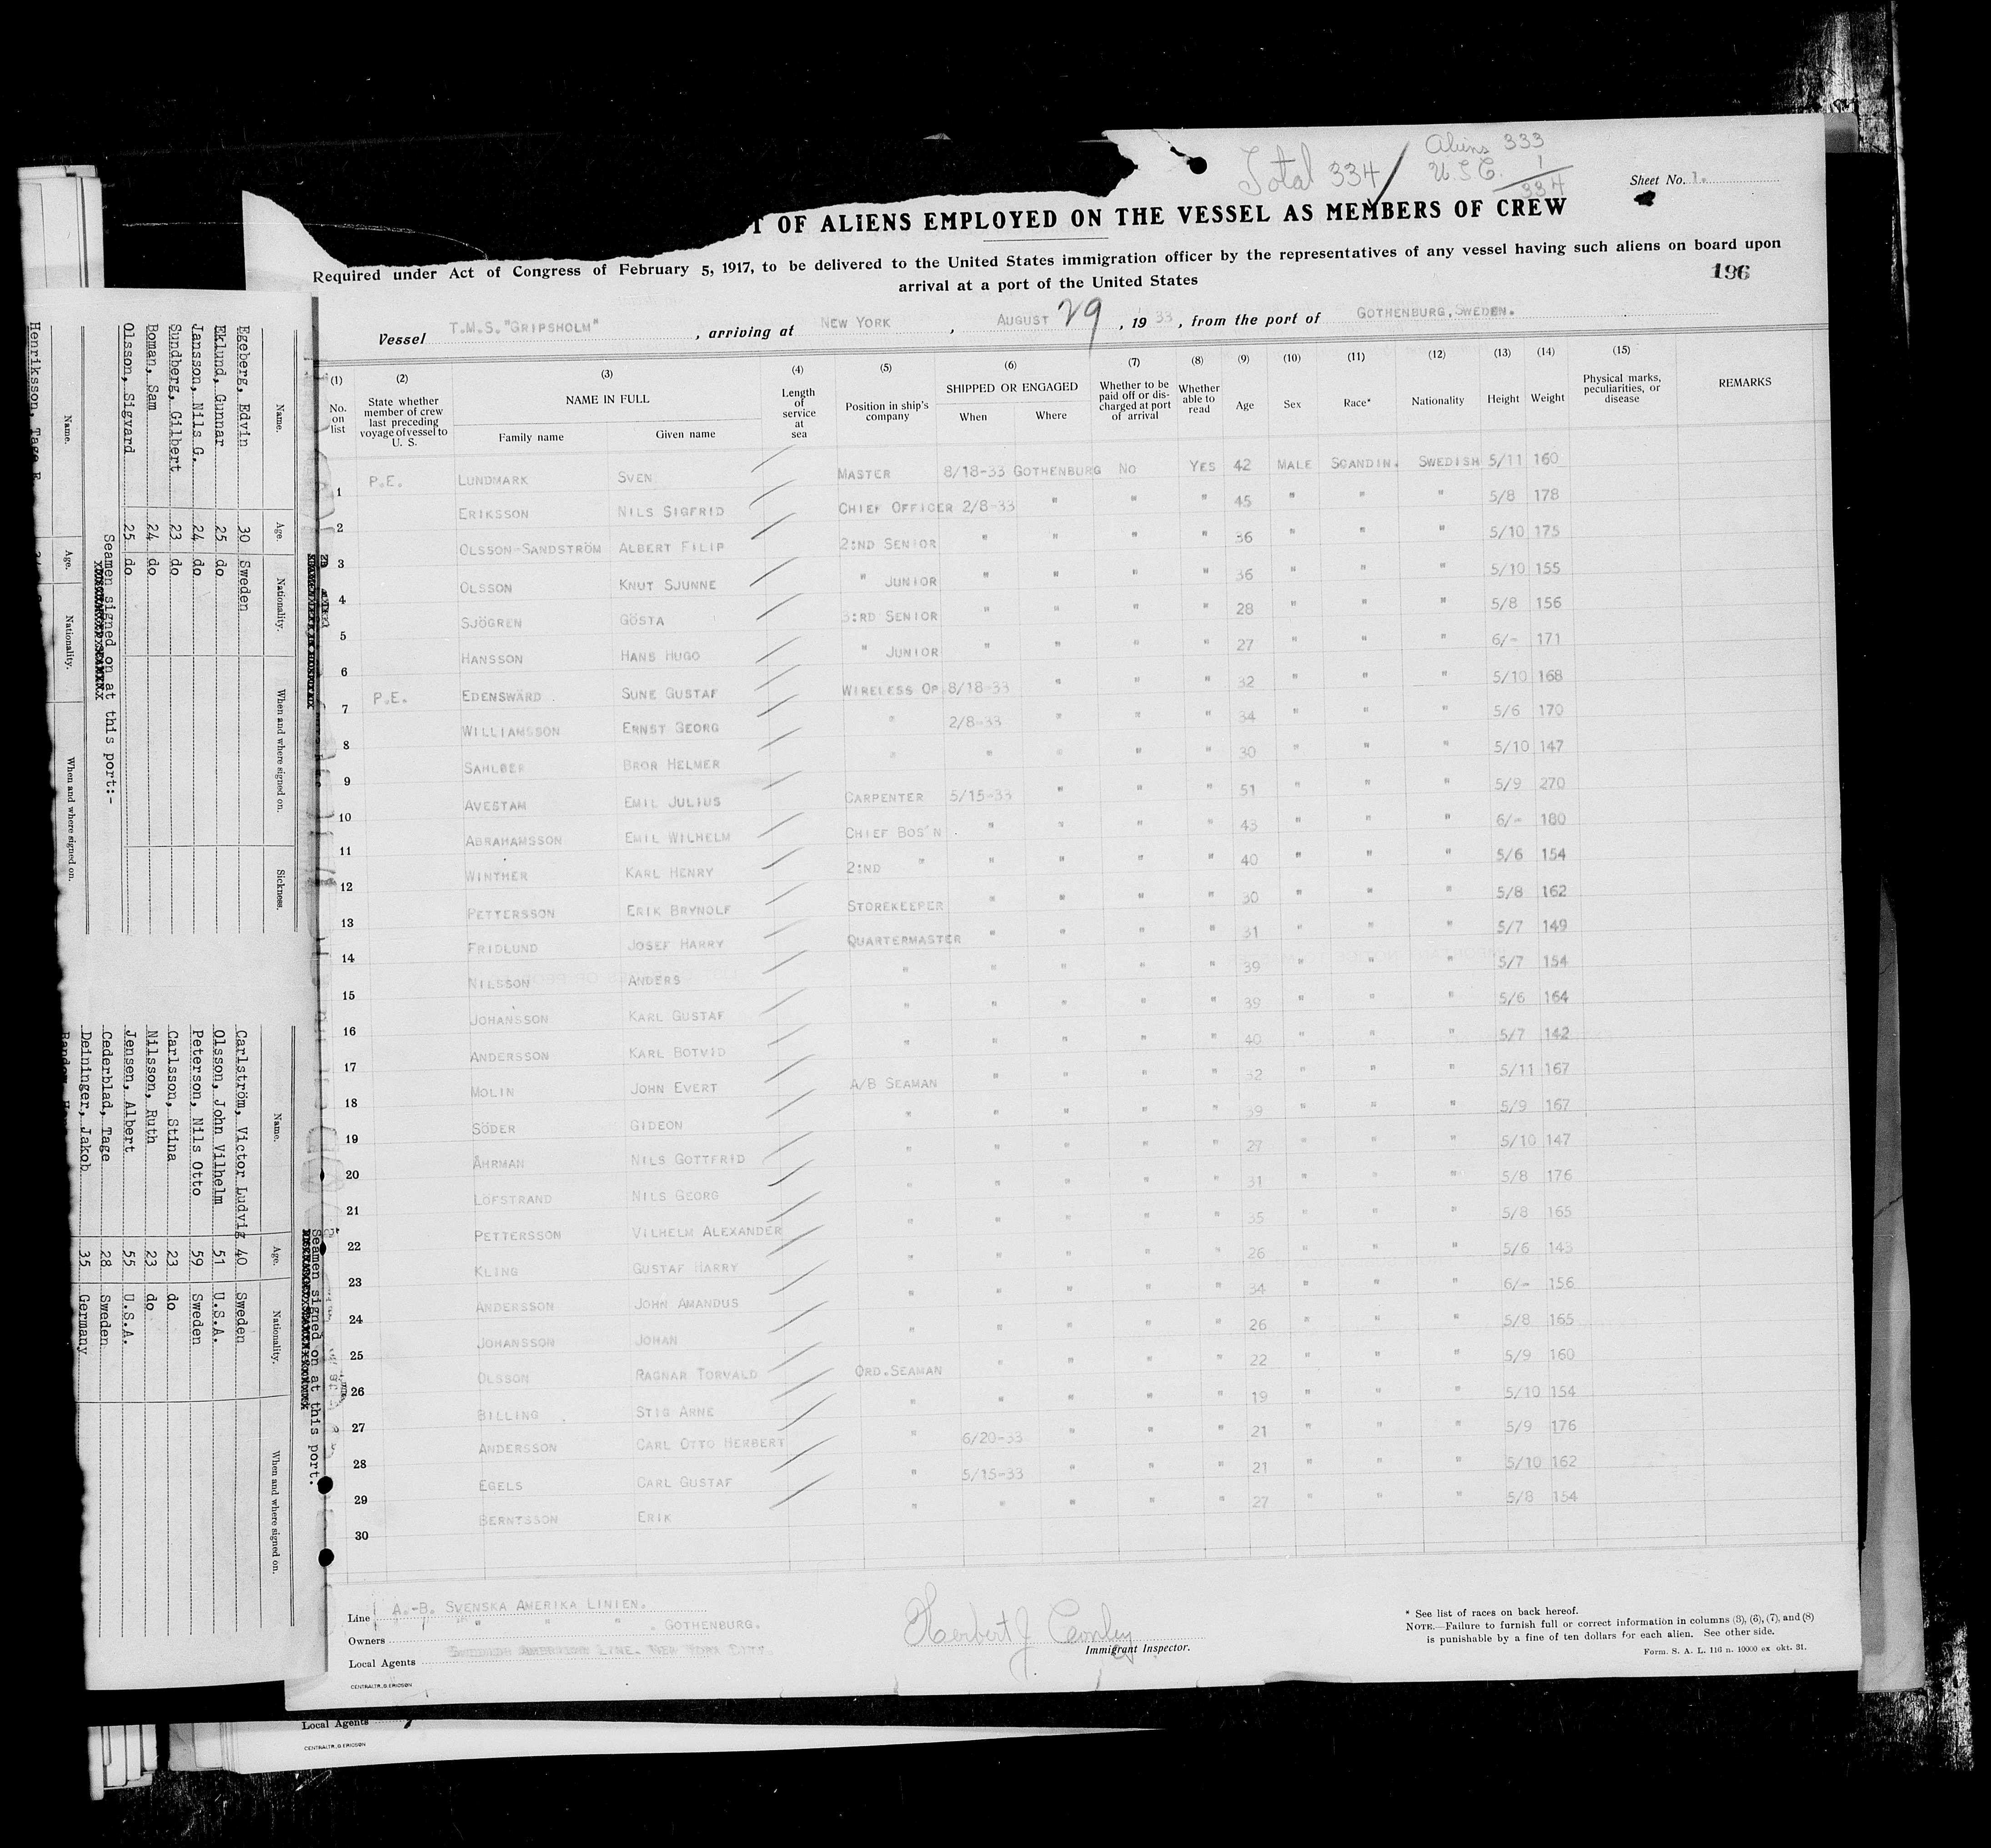 Total 334 / Aliens 333
U.S.C. 1
334
Sheet No. 1.
T OF ALIENS EMPLOYED ON THE VESSEL AS MEMBERS OF CREW
Required under Act of Congress of February 5, 1917, to be delivered to the United States immigration officer by the representatives of any vessel having such aliens on board upon
arrival at a port of the United States
196
Vessel T.M.S. "GRIPSHOLM", arriving at NEW YORK, AUGUST 29, 1933, from the port of GOTHENBURG, SWEDEN.
(1) No. on list
(2) State whether member of crew last preceding voyage of vessel to U. S.
(3) NAME IN FULL Family name Given name
(4) Length of service at sea
(5) Position in ship's company
(6) SHIPPED OR ENGAGED When Where
(7) Whether to be paid off or discharged at port of arrival
(8) Whether able to read
(9) Age
(10) Sex
(11) Race*
(12) Nationality
(13) Height
(14) Weight
(15) Physical marks, peculiarities, or disease
REMARKS
1 P.E. LUNDMARK SVEN MASTER 8/18-33 GOTHENBURG NO YES 42 MALE SCANDIN. SWEDISH 5/11 160
2 ERIKSSON NILS SIGFRID CHIEF OFFICER 2/8-33 " " " 45 " " " 5/8 178
3 OLSSON-SANDSTRÖM ALBERT FILIP 2:ND SENIOR " " " " 36 " " " 5/10 175
4 OLSSON KNUT SJUNNE " JUNIOR " " " " 36 " " " 5/10 155
5 SJÖGREN GÖSTA 3:RD SENIOR " " " " 28 " " " 5/8 156
6 HANSSON HANS HUGO " JUNIOR " " " " 27 " " " 6/- 171
7 P.E. EDENSWÄRD SUNE GUSTAF WIRELESS OP. 8/18-33 " " " 32 " " " 5/10 168
8 WILLIAMSSON ERNST GEORG " 2/8-33 " " " 34 " " " 5/6 170
9 BROR HELMER " " " " " 30 " " " 5/10 147
10 AVESTAM EMIL JULIUS CARPENTER 5/15-33 " " " 51 " " " 5/9 270
11 ABRAHAMSSON EMIL WILHELM CHIEF BOS'N " " " " 43 " " " 6/- 180
12 WINTHER KARL HENRY 2:ND " " " " " 40 " " " 5/6 154
13 PETTERSSON ERIK BRYNOLF STOREKEEPER " " " " 30 " " " 5/8 162
14 FRIDLUND JOSEF HARRY QUARTERMASTER " " " " 31 " " " 5/7 149
15 NILSSON ANDERS " " " " " 39 " " " 5/7 154
16 JOHANSSON KARL GUSTAF " " " " " 39 " " " 5/6 164
17 ANDERSSON KARL BOTVID " " " " " 40 " " " 5/7 142
18 MOLIN JOHN EVERT A/B SEAMAN " " " " 32 " " " 5/11 167
19 SÖDER GIDEON " " " " " 39 " " " 5/9 167
20 ÅHRMAN NILS GOTTFRID " " " " " 27 " " " 5/10 147
21 LÖFSTRAND NILS GEORG " " " " " 31 " " " 5/8 176
22 PETTERSSON VILHELM ALEXANDER " " " " " 35 " " " 5/8 165
23 KLING GUSTAF HARRY " " " " " 26 " " " 5/6 143
24 ANDERSSON JOHN AMANDUS " " " " " 34 " " " 6/- 156
25 JOHANSSON JOHAN " " " " " 26 " " " 5/8 165
26 OLSSON RAGNAR TORVALD ORD.SEAMAN " " " " 22 " " " 5/9 160
27 BILLING STIG ARNE " " " " " 19 " " " 5/10 154
28 ANDERSSON CARL OTTO HERBERT " 6/20-33 " " " 21 " " " 5/9 176
29 EGELS CARL GUSTAF " 5/15-33 " " " 21 " " " 5/10 162
30 BERNTSSON ERIK " " " " " 27 " " " 5/8 154
Line A.-B. SVENSKA AMERIKA LINIEN.
Owners " " " . GOTHENBURG.
Local Agents SWEDISH AMERICAN LINE. NEW YORK CITY.
CENTRALTR., G. ERICSON
Herbert J
Immigrant Inspector.
* See list of races on back hereof.
NOTE.—Failure to furnish full or correct information in columns (3), (6), (7), and (8)
is punishable by a fine of ten dollars for each alien. See other side.
Form. S. A. L. 116 n. 10000 ex okt. 31.
Local Agents
CENTRALTR., G. ERICSON
Name. Age. Nationality. When and where signed on. Sickness.
Egeberg, Edvin 30 Sweden
Eklund, Gunnar 25 do
Jansson, Nils G. 24 do
Sundberg, Gilbert 23 do
Boman, Sam 24 do
Olsson, Sigvard 25 do
Seamen signed on at this port:-
Name. Age. Nationality. When and where signed on.
Henriksson, Tage F.
Seamen signed on at this port.
Name. Age. Nationality. When and where signed on.
Carlström, Victor Ludvig 40 Sweden
Olsson, John Vilhelm 51 U.S.A.
Peterson, Nils Otto 59 Sweden
Carlsson, Stina 23 do
Nilsson, Ruth 23 do
Jensen, Albert 55 U.S.A.
Cederblad, Tage 28 Sweden
Deininger, Jakob 35 Germany